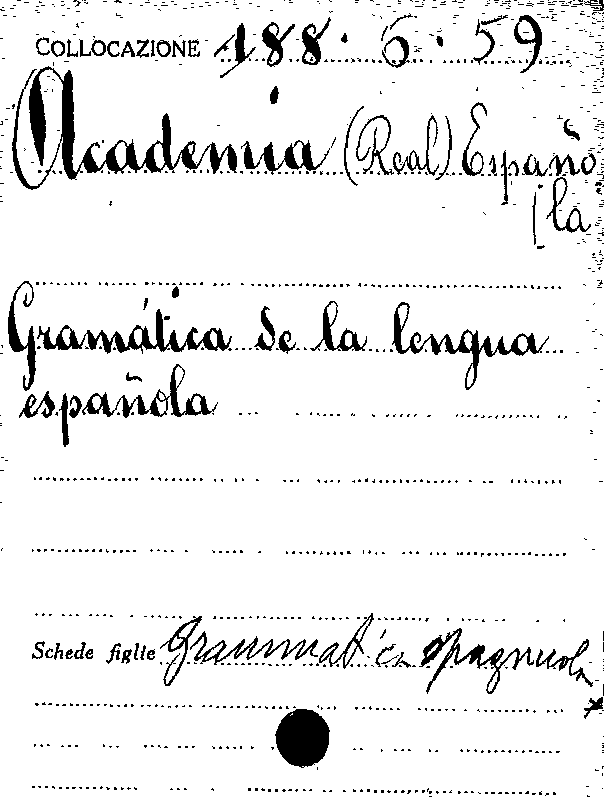 COLLOCAZIONE 188. 6. 59
Academia (Real) Españo
(la
Gramática de la lengua
española
Schede figlie Grammatica spagnuola